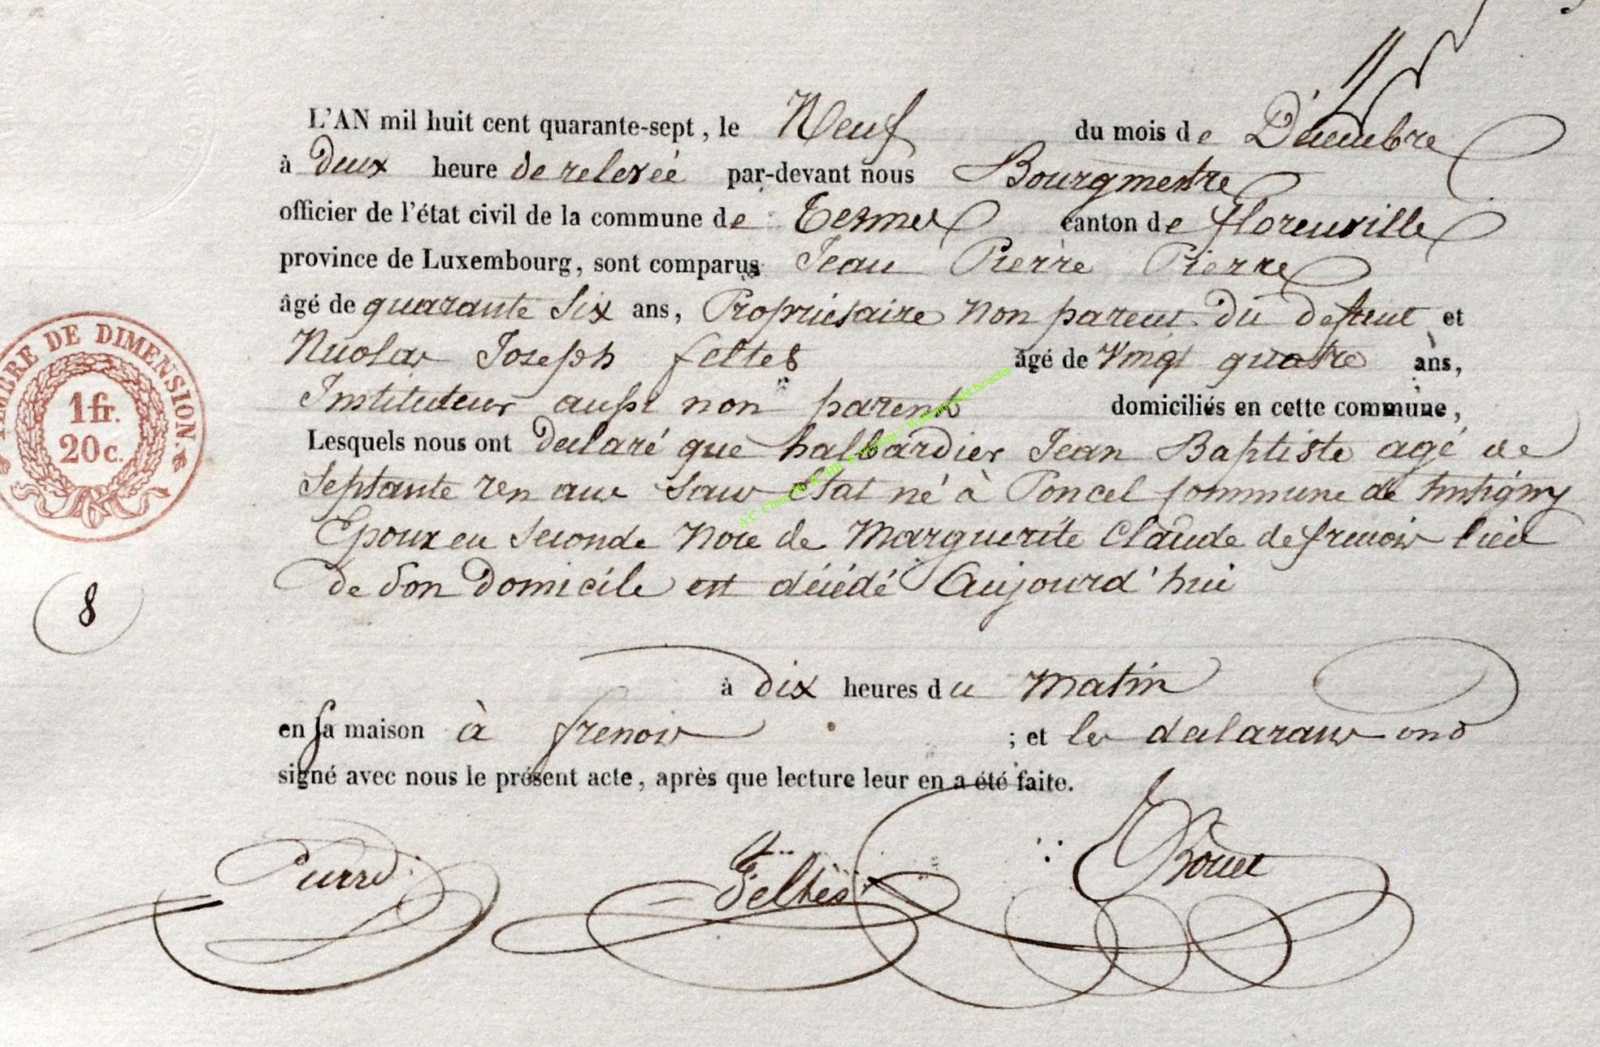 L'AN mil huit cent quarante-sept, le Neuf du mois de Décembre
à deux heure de relevée par-devant nous Bourgmestre
officier de l'état civil de la commune de Termes canton de florenville
province de Luxembourg, sont comparus Jean Pierre Pierre
âgé de quarante Six ans, Propriétaire Non parent du defunt et
Nicolas Joseph feltes âgé de Vingt quatre ans,
Instituteur aussi non parent domiciliés en cette commune,
Lesquels nous ont declaré que halbardier Jean Baptiste agé de
Septante ans Sans Etat né à Poncel Commune de tintigny
Epoux en Seconde Noce de Marguerite Claude de frenois lieu
de Son domicile est décédé Aujourd'hui
à dix heures du Matin
en sa maison à frenois ; et les declarans ond
signé avec nous le présent acte, après que lecture leur en a été faite.
TIMBRE DE DIMENSION.
1 fr.
20 c.
8
Pierre Feltès